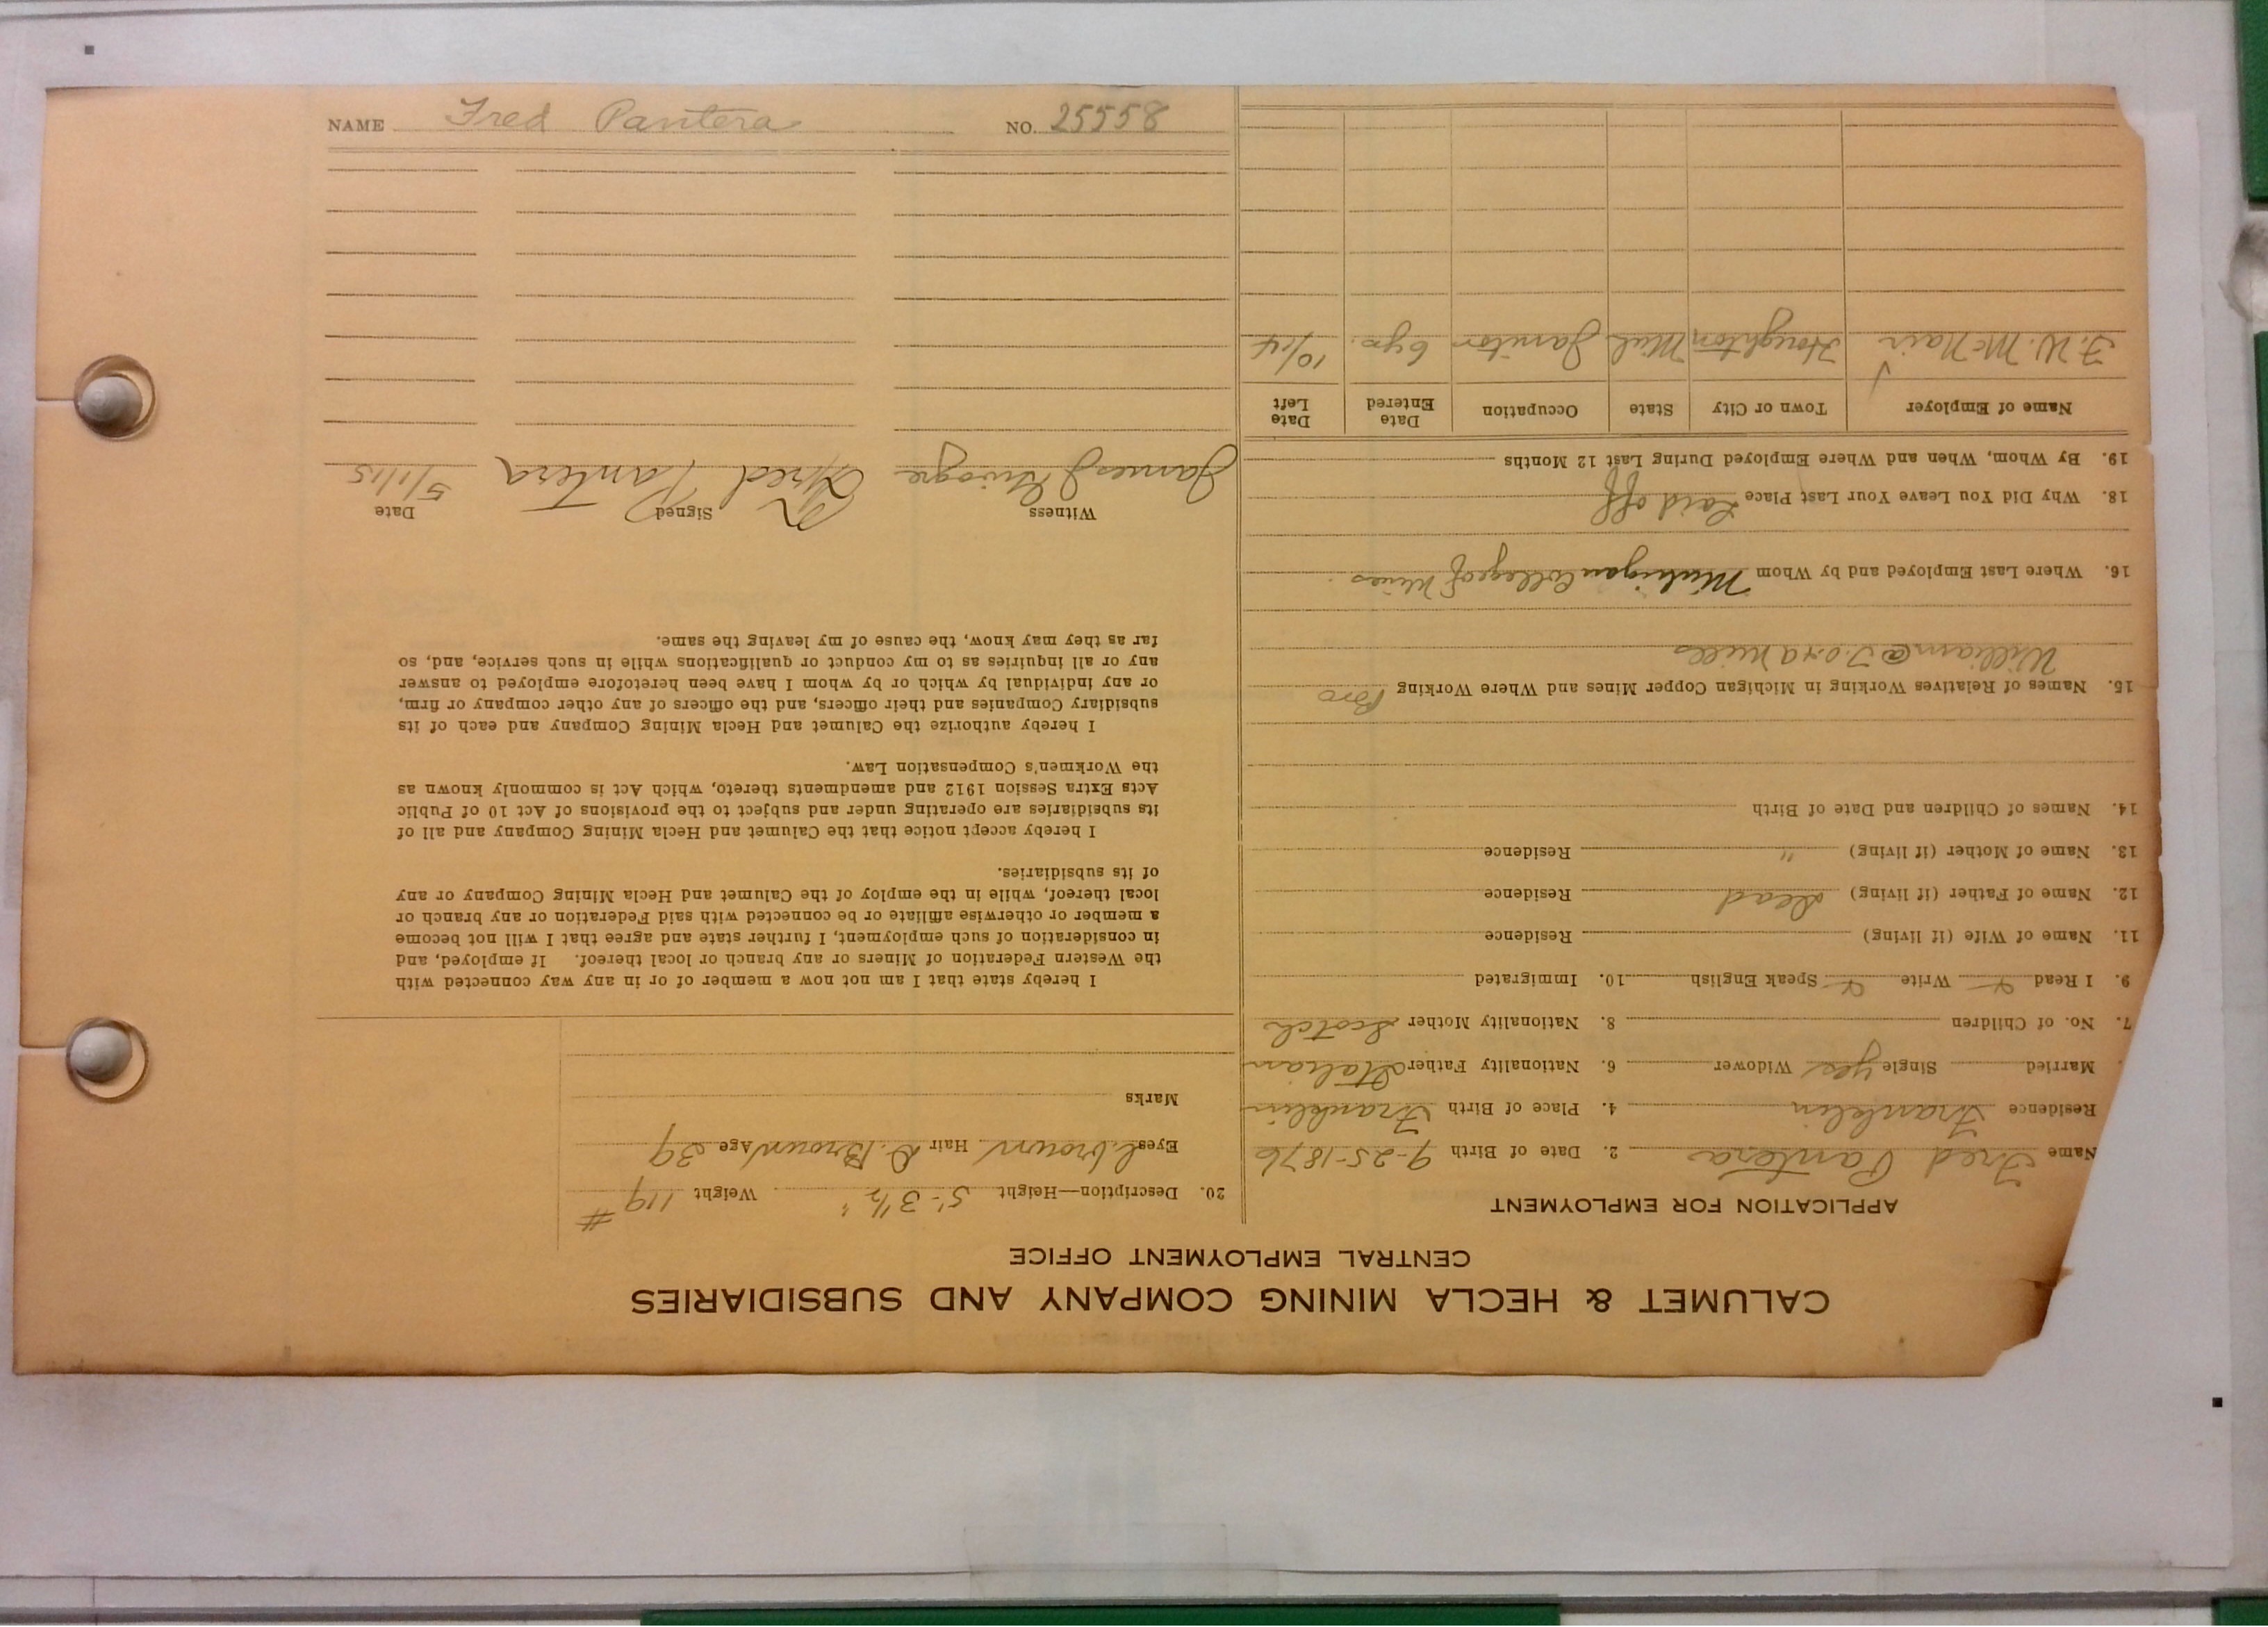 CALUMET & HECLA MINING COMPANY AND SUBSIDIARIES
CENTRAL EMPLOYMENT OFFICE
APPLICATION FOR EMPLOYMENT
Name Fred Pantera 2. Date of Birth 9-25-1876
Residence Franklin 4. Place of Birth Franklin
Married Single yes Widower 6. Nationality Father Italian
7. No. of Children 8. Nationality Mother Scotch
9. I Read Write Speak English 10. Immigrated
11. Name of Wife (if living) Residence
12. Name of Father (if living) dead Residence
13. Name of Mother (if living) " Residence
14. Names of Children and Date of Birth
15. Names of Relatives Working in Michigan Copper Mines and Where Working Bro
William @
16. Where Last Employed and by Whom Michigan College of Mines
18. Why Did You Leave Your Last Place Laid off
19. By Whom, When and Where Employed During Last 12 Months
Name of Employer Town or City State Occupation Date Entered Date Left
F. W. McNair Houghton Mich Janitor 6 yrs. 10/14
20. Description—Height 5'-3 1/2" Weight 119 #
Eyes L. brown Hair D. Brown Age 39
Marks
I hereby state that I am not now a member of or in any way connected with
the Western Federation of Miners or any branch or local thereof. If employed, and
in consideration of such employment, I further state and agree that I will not become
a member or otherwise affiliate or be connected with said Federation or any branch or
local thereof, while in the employ of the Calumet and Hecla Mining Company or any
of its subsidiaries.
I hereby accept notice that the Calumet and Hecla Mining Company and all of
its subsidiaries are operating under and subject to the provisions of Act 10 of Public
Acts Extra Session 1912 and amendments thereto, which Act is commonly known as
the Workmen's Compensation Law.
I hereby authorize the Calumet and Hecla Mining Company and each of its
subsidiary Companies and their officers, and the officers of any other company or firm,
or any individual by which or by whom I have been heretofore employed to answer
any or all inquiries as to my conduct or qualifications while in such service, and, so
far as they may know, the cause of my leaving the same.
Witness Signed Date
James J Fred Pantera 5/1/15
NAME Fred Pantera NO. 25558